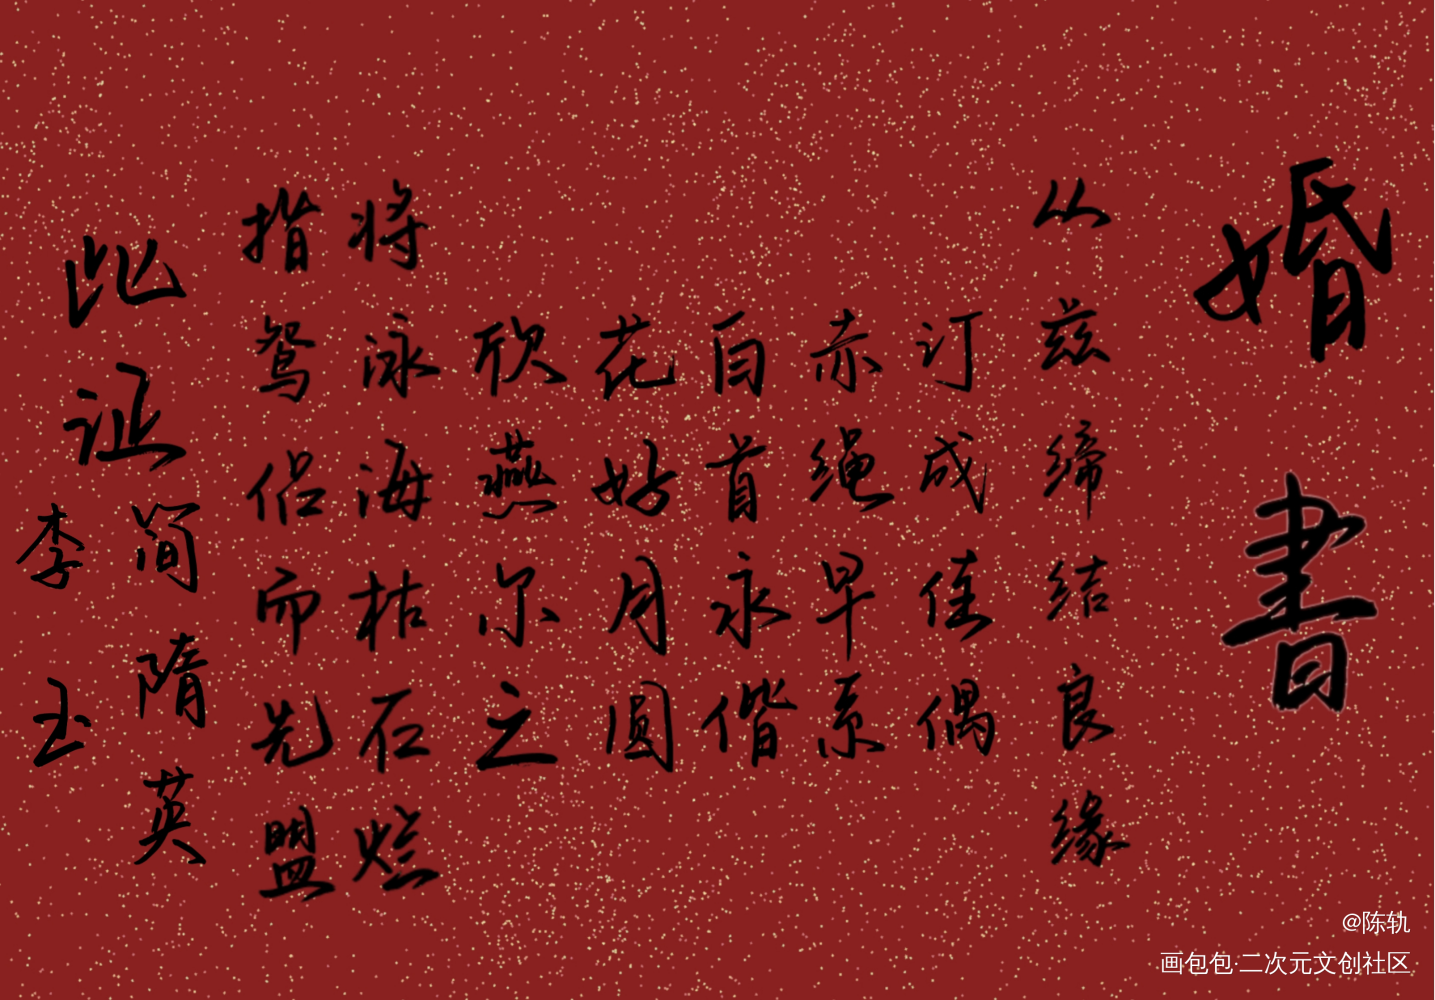 婚書
从兹缔结良缘
订成佳偶
赤绳早系
白首永偕
花好月圆
欣燕尔之
将泳海枯石烂
指鸳侣而先盟
此证
简隋英
李玉
@陈轨
画包包·二次元文创社区